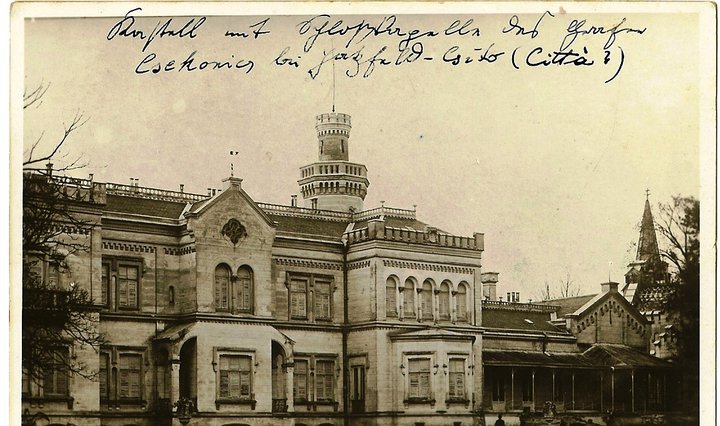 Kastell mit Schloßkapelle des Grafen
Csekonics bei Hatzfeld-Csitó (Città?)